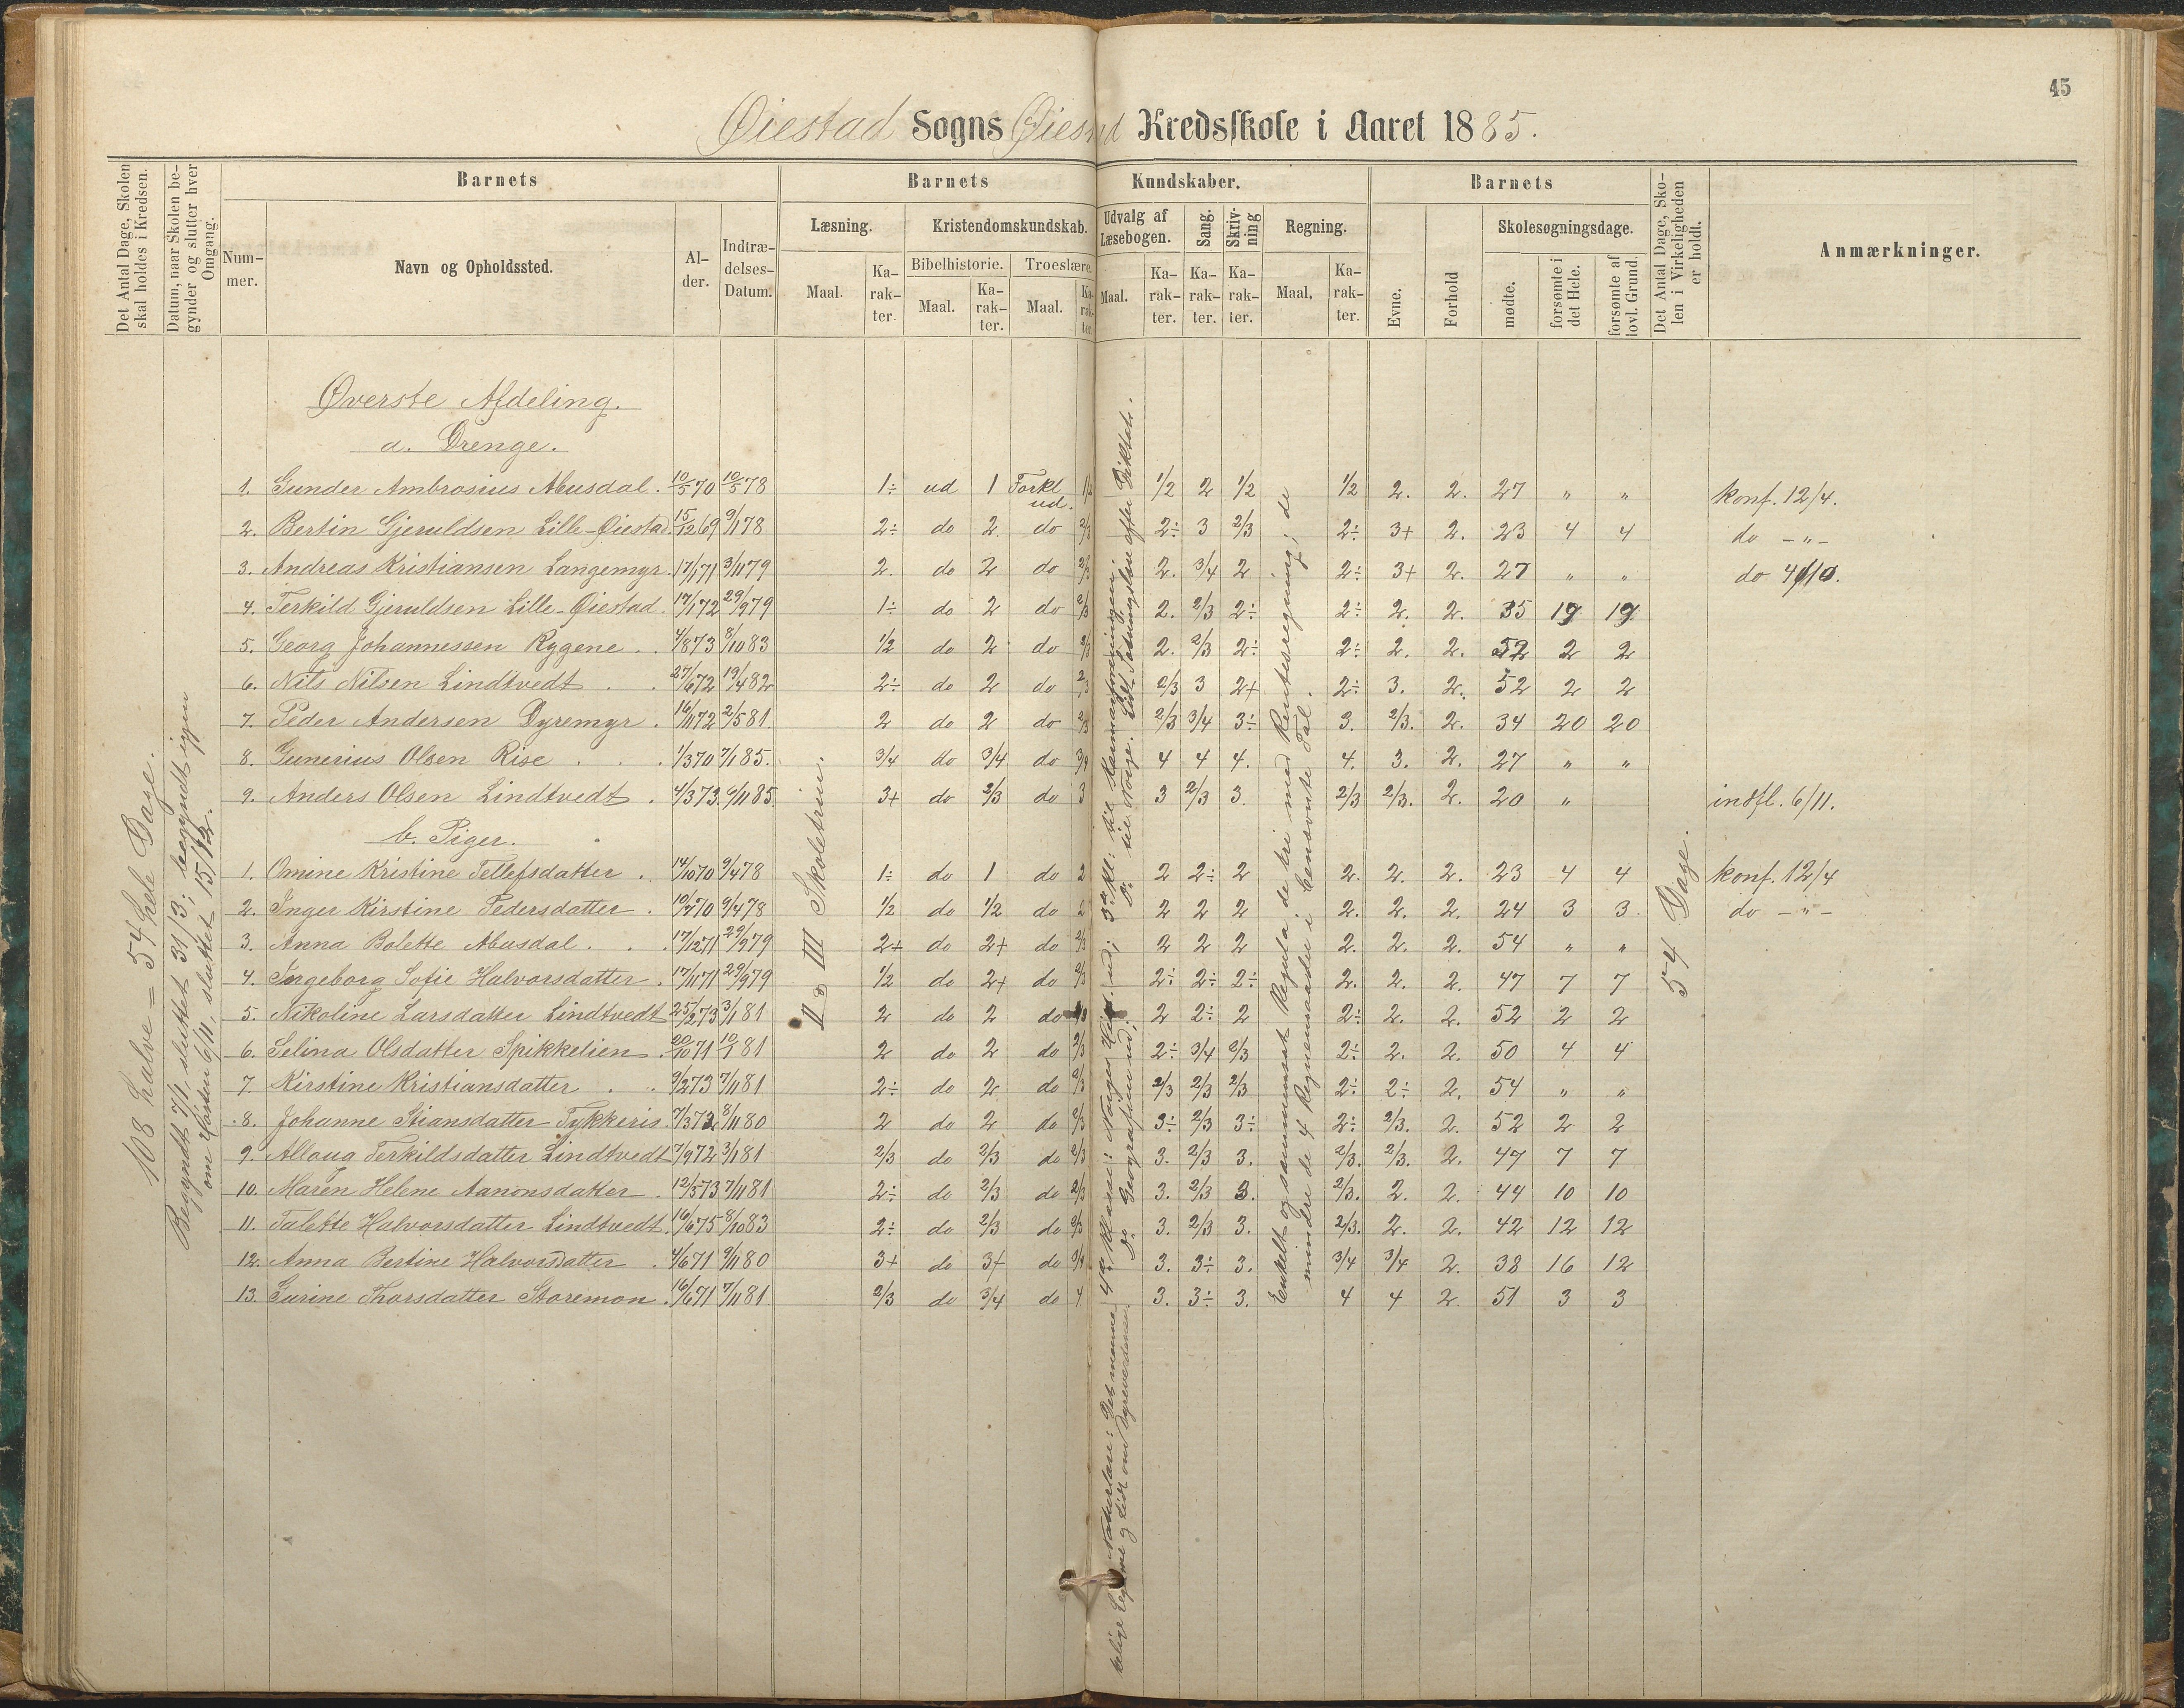 45
Øiestad Sogns Øiestad Kredsskole i Aaret 1885.
Det Antal Dage, Skolen skal holdes i Kredsen.
Datum, naar Skolen begynder og slutter hver Omgang.
Barnets
Nummer.
Navn og Opholdssted.
Alder.
Indtrædelses-Datum.
Barnets Kundskaber.
Læsning.
Maal.
Karakter.
Kristendomskundskab.
Bibelhistorie.
Maal.
Karakter.
Troeslære.
Maal.
Karakter.
Udvalg af Læsebogen.
Maal.
Karakter.
Sang.
Karakter.
Skrivning
Karakter.
Regning.
Maal.
Karakter.
Barnets
Evne.
Forhold
Skolesøgningsdage.
mødte.
forsømte i det Hele.
forsømte af lovl. Grund.
Det Antal Dage, Skolen i Virkeligheden er holdt.
Anmærkninger.
108 halve = 54 hele Dage.
Begyndt 7/1, sluttet 31/3; begyndt igjen
om Høsten 6/11, sluttet 15/12.
II & III Skoletrin.
4de Klasse: Norges Hist. ud; 3die Kl: til Kalmarforeningen.
do Geografien ud; do til Norge. Lidt Retskrivning efter Diktat.
Naturlære: Det menneskelige Legeme og lidt om Dyreverdenen.
Enkelt og sammensat Regula de tri med Rentesregning; de
mindre de 4 Regnemaader i benævnte Tal.
54 Dage.
Øverste Afdeling.
a. Drenge.
1. Gunder Ambrosius Abusdal. 10/5 70 10/5 78 1÷ ud 1 Forkl. ud. 1/2 1/2 2 1/2 1/2 2. 2. 27 " " konf. 12/4.
2. Bertin Gjeruldsen Lille-Øiestad. 15/12 69 9/1 78 2÷ do 2 do 2/3 2÷ 3 2/3 2÷ 3+ 2. 23 4 4 do -"-
3. Andreas Kristiansen Langemyr. 17/1 71 3/11 79 2. do 2 do 2/3 2. 3/4 2 2÷ 3+ 2. 27 " " do 4/10.
4. Terkild Gjeruldsen Lille-Øiestad. 17/1 72 29/9 79 1÷ do 2 do 2/3 2. 2/3 2÷ 2÷ 2. 2. 35 19 19
5. Georg Johannessen Rygene. 4/8 73 8/10 83 1/2 do 2 do 2/3 2. 2/3 2÷ 2÷ 2. 2. 52 2 2
6. Nils Nilsen Lindtvedt. 27/6 72 19/4 82 2÷ do 2 do 2/3 2/3 3 2+ 2÷ 3. 2. 52 2 2
7. Peder Andersen Dyremyr. 16/11 72 2/5 81 2 do 2 do 2/3 2/3 3/4 3÷ 3. 2/3. 2. 34 20 20
8. Gunerius Olsen Rise. 1/3 70 7/1 85. 3/4 do 3/4 do 3/4 4 4 4. 4. 3. 2. 27 " "
9. Anders Olsen Lindtvedt. 4/3 73 6/11 85 3+ do 2/3 do 3 3 2/3 3. 2/3 2/3. 2. 20 " indfl. 6/11.
b. Piger.
1. Omine Kristine Tellefsdatter. 14/10 70 9/4 78 1÷ do 1 do 2 2 2÷ 2 2. 2. 2. 23 4 4 konf. 12/4
2. Inger Kirstine Pedersdatter. 10/4 70 9/4 78 1/2 do 1/2 do 2 2 2 2 2. 2. 2. 24 3 3. do -"-
3. Anna Bolette Abusdal. 17/12 71 29/9 79 2+ do 2+ do 2/3 2 2 2 2. 2. 2. 54 " "
4. Ingeborg Sofie Halvorsdatter. 17/11 71 29/9 79 1/2 do 2+ do 2/3 2÷ 2÷ 2÷ 2. 2. 2. 47 7 7
5. Nikoline Larsdatter Lindtvedt 25/2 73 3/1 81 2 do 2 do 2 2÷ 2 2÷ 2. 2. 52 2 2
6. Selina Olsdatter Spikkelien. 20/10 71 10/1 81 2 do 2 do 2/3 2÷ 3/4 2/3 2÷ 2. 2. 50 4 4
7. Kirstine Kristiansdatter. 9/2 73 7/11 81 2÷ do 2 do 2/3 2/3 2/3 2/3 2÷ 2÷ 2. 54 " "
8. Johanne Stiansdatter Tykkeris. 7/3 72 8/11 80 2 do 2 do 2/3 3÷ 2/3 3÷ 2÷ 2/3. 2. 52 2 2
9. Alloug Terkildsdatter Lindtvedt 7/9 72 3/1 81 2/3 do 2/3 do 2/3 3. 2/3 3. 2/3. 2/3. 2. 47 7 7
10. Maren Helene Aanonsdatter. 12/5 73 7/11 81 2÷ do 2/3 do 2/3 3. 2/3 3. 2/3. 2. 2. 44 10 10
11. Talette Halvorsdatter Lindtvedt. 16/6 75 8/10 83 2÷ do 2/3 do 2/3 3. 2/3 3. 2/3. 2. 2. 42 12 12
12. Anna Bertine Halvorsdatter. 4/6 71 9/11 80 3+ do 3+ do 3/4 3. 3÷ 3. 3/4 3/4 2. 38 16 12
13. Gurine Thorsdatter Storemon. 16/6 71 7/11 81 2/3 do 3/4 do 4 3. 3÷ 3. 4 4 2. 51 3 3